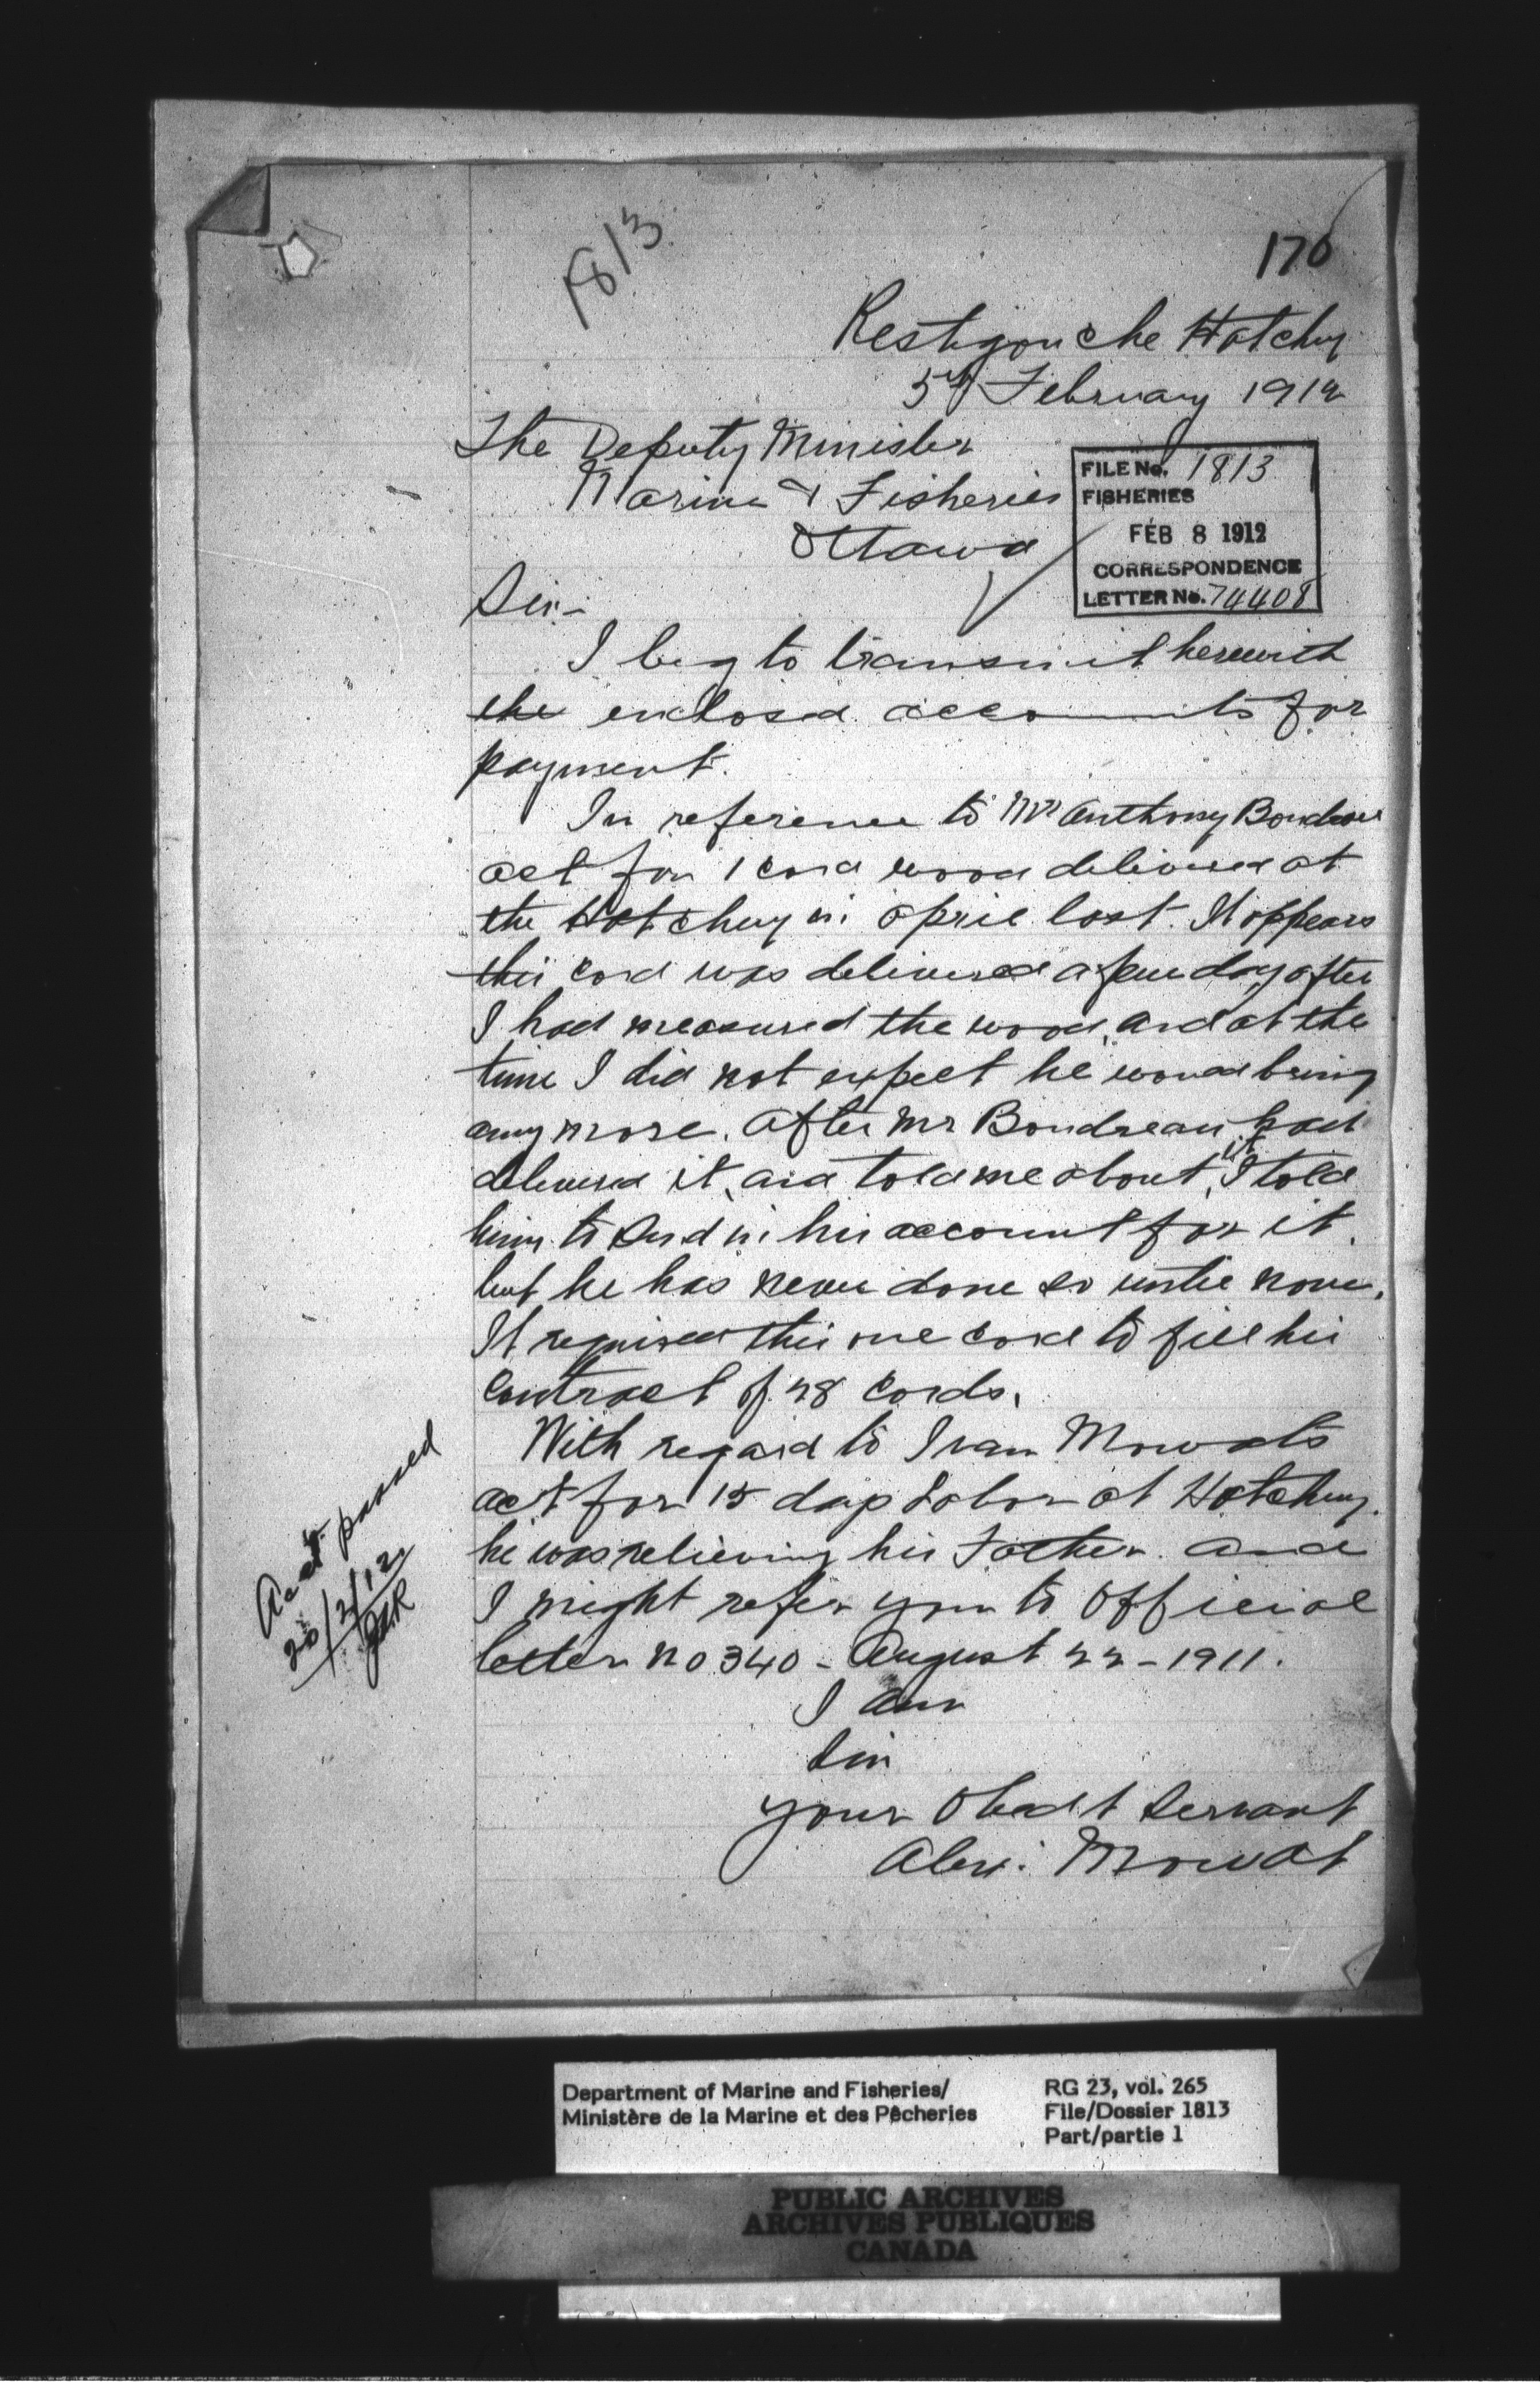 1813
170
Restigouche Hatchery
5th February 1912
The Deputy Minister
Marine & Fisheries
Ottawa
FILE No. 1813
FISHERIES
FEB 8 1912
CORRESPONDENCE
LETTER No. 74408
Sir:-
I beg to transmit herewith
the enclosed accounts for
payment.
In reference to Mr Anthony Boudreau
act for 1 cord wood delivered at
the Hatchery in April last. It appears
this cord was delivered a few days after
I had measured the wood, and at the
time I did not expect he would bring
any more. After Mr Boudreau had
delivered it, and told me about it, I told
him to send in his account for it.
but he has never done so until now.
It required this one cord to fill his
contract of 28 cords.
With regard to Ivan Mowats
act for 15 days Labor at Hatchery.
he was relieving his Father. and
I might refer you to Official
letter no 340 - August 22 - 1911.
I am
Sir
your Obedt Servant
Alex. Mowat
Acct passed
20/2/12
Department of Marine and Fisheries/
Ministère de la Marine et des Pêcheries
RG 23, vol. 265
File/Dossier 1813
Part/partie 1
PUBLIC ARCHIVES
ARCHIVES PUBLIQUES
CANADA